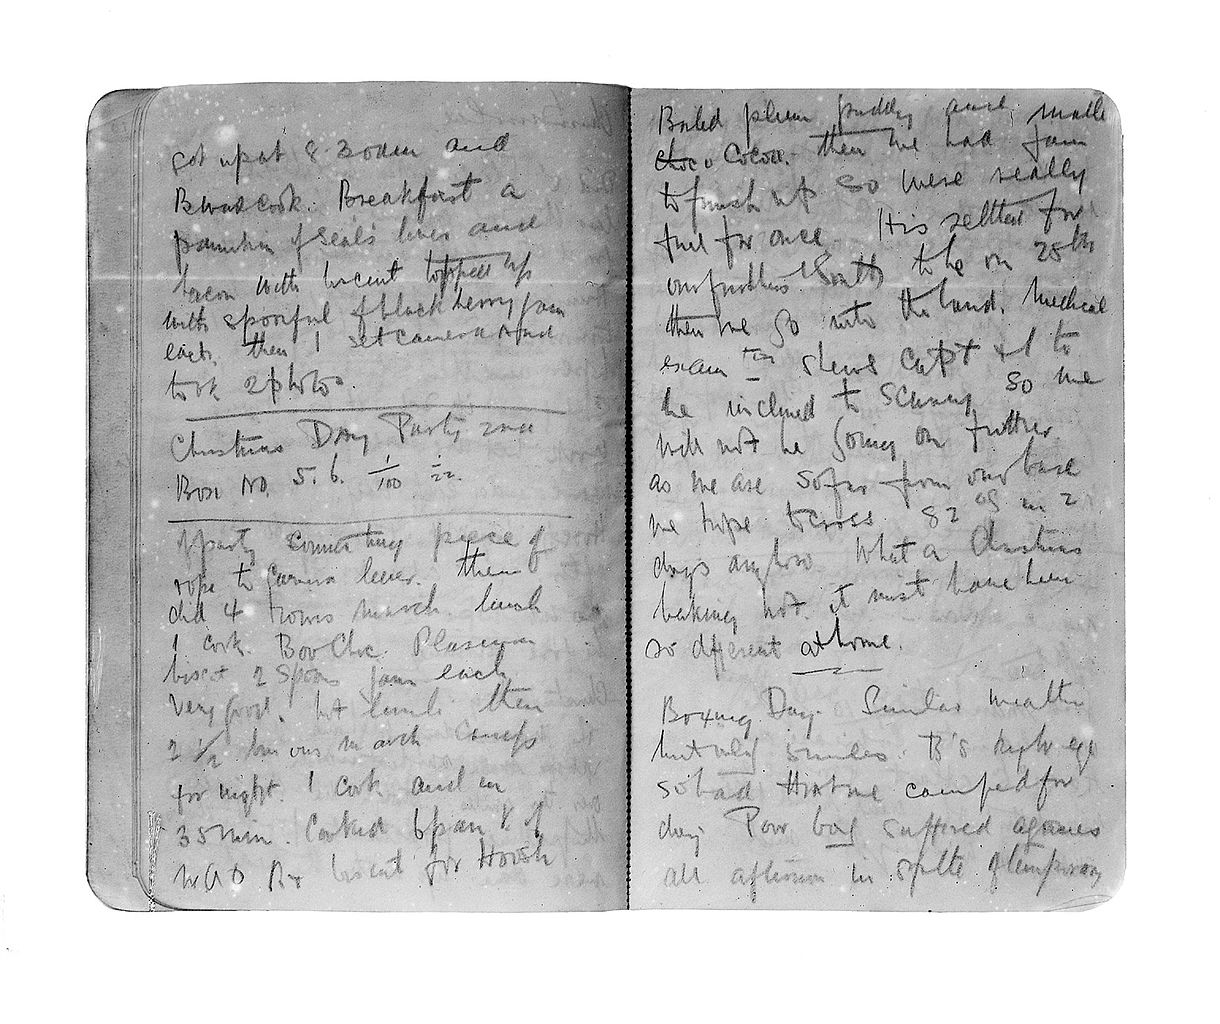 Got up at 8.30am and
B was cook. Breakfast a
pannikin of seal's liver and
bacon with biscuit topped up
with spoonful of blackberry jam
each. then I set camera and
took 2 photos.
Christmas Day Party 2nd
Box No. 5. 6. 1/100 ÷ 22.
of party connecting piece of
rope to camera lever. then
did 4 hours march. lunch
I cook. Bov Choc. Plasmon
bisct 2 spoons jam each
very good! hot lunch then
2 1/2 hours march Camps
for night. I cook and in
35 min. Cooked 6 pan of
biscuit for Hoosh
Boiled plum pudding and made
choco Cocoa. then we had jam
to finish up so were really
full for once. It is settled for
our furthest South to be on 28th
then we go into the land. Medical
exam shews Capt & I to
be inclined to scurvy so we
will not be going on further
as we are so far from our base
we hope to cross 82 in 2
days anyhow What a Christmas
baking hot. it must have been
so different at home.
Boxing Day. Similar weather
but only 5 miles. B's right eye
so bad that we camped for
day. Poor boy suffered agonies
all afternoon in spite of temporary